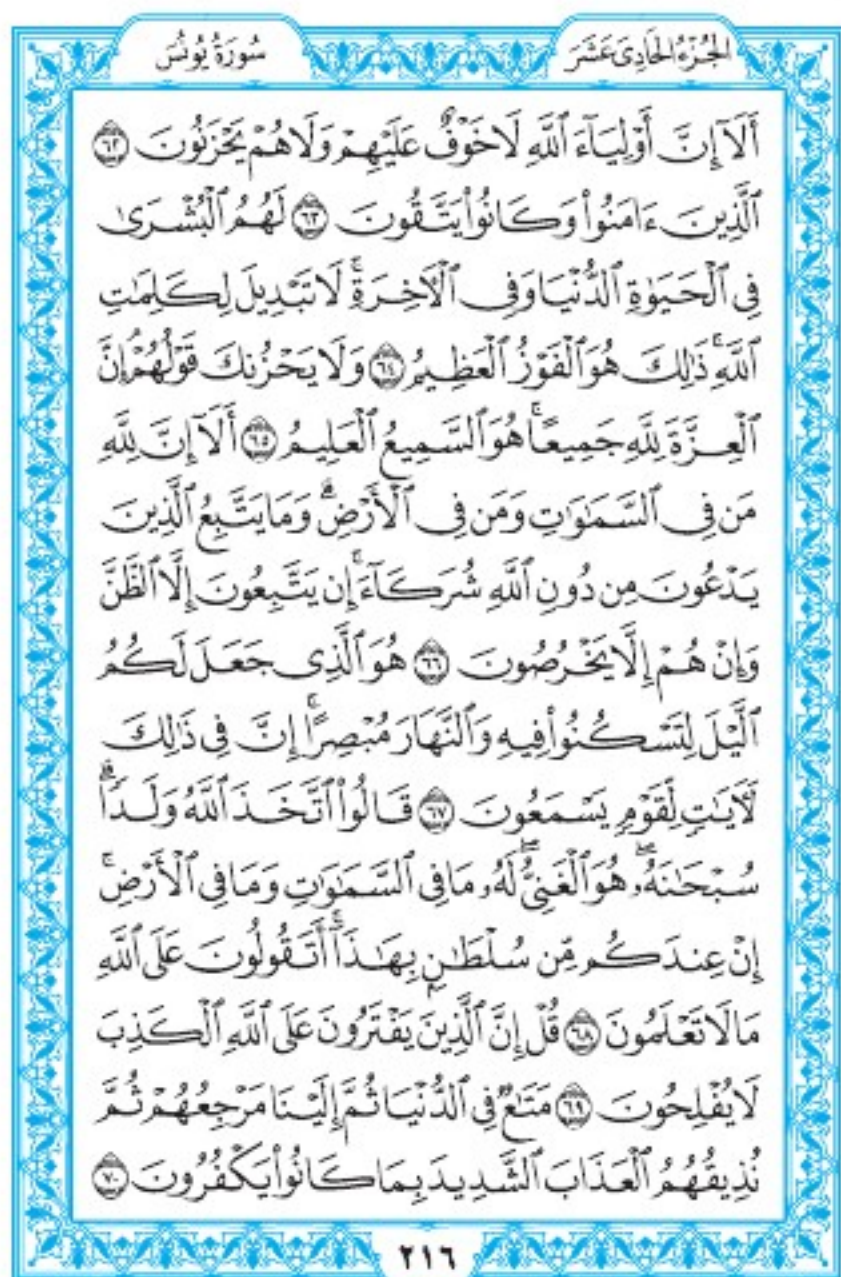 الجُزْءُ الحَادِى عَشَرَ
سُورَةُ يُونُس
أَلَآ إِنَّ أَوْلِيَآءَ ٱللَّهِ لَا خَوْفٌ عَلَيْهِمْ وَلَا هُمْ يَحْزَنُونَ ٦٢
ٱلَّذِينَ ءَامَنُوا۟ وَكَانُوا۟ يَتَّقُونَ ٦٣ لَهُمُ ٱلْبُشْرَىٰ
فِى ٱلْحَيَوٰةِ ٱلدُّنْيَا وَفِى ٱلْءَاخِرَةِ ۚ لَا تَبْدِيلَ لِكَلِمَٰتِ
ٱللَّهِ ۚ ذَٰلِكَ هُوَ ٱلْفَوْزُ ٱلْعَظِيمُ ٦٤ وَلَا يَحْزُنكَ قَوْلُهُمْ ۘ إِنَّ
ٱلْعِزَّةَ لِلَّهِ جَمِيعًا ۚ هُوَ ٱلسَّمِيعُ ٱلْعَلِيمُ ٦٥ أَلَآ إِنَّ لِلَّهِ
مَن فِى ٱلسَّمَٰوَٰتِ وَمَن فِى ٱلْأَرْضِ ۗ وَمَا يَتَّبِعُ ٱلَّذِينَ
يَدْعُونَ مِن دُونِ ٱللَّهِ شُرَكَآءَ ۚ إِن يَتَّبِعُونَ إِلَّا ٱلظَّنَّ
وَإِنْ هُمْ إِلَّا يَخْرُصُونَ ٦٦ هُوَ ٱلَّذِى جَعَلَ لَكُمُ
ٱلَّيْلَ لِتَسْكُنُوا۟ فِيهِ وَٱلنَّهَارَ مُبْصِرًا ۚ إِنَّ فِى ذَٰلِكَ
لَءَايَٰتٍ لِّقَوْمٍ يَسْمَعُونَ ٦٧ قَالُوا۟ ٱتَّخَذَ ٱللَّهُ وَلَدًا ۗ
سُبْحَٰنَهُۥ ۖ هُوَ ٱلْغَنِىُّ ۖ لَهُۥ مَا فِى ٱلسَّمَٰوَٰتِ وَمَا فِى ٱلْأَرْضِ ۚ
إِنْ عِندَكُم مِّن سُلْطَٰنٍۭ بِهَٰذَآ ۚ أَتَقُولُونَ عَلَى ٱللَّهِ
مَا لَا تَعْلَمُونَ ٦٨ قُلْ إِنَّ ٱلَّذِينَ يَفْتَرُونَ عَلَى ٱللَّهِ ٱلْكَذِبَ
لَا يُفْلِحُونَ ٦٩ مَتَٰعٌ فِى ٱلدُّنْيَا ثُمَّ إِلَيْنَا مَرْجِعُهُمْ ثُمَّ
نُذِيقُهُمُ ٱلْعَذَابَ ٱلشَّدِيدَ بِمَا كَانُوا۟ يَكْفُرُونَ ٧٠
٢١٦